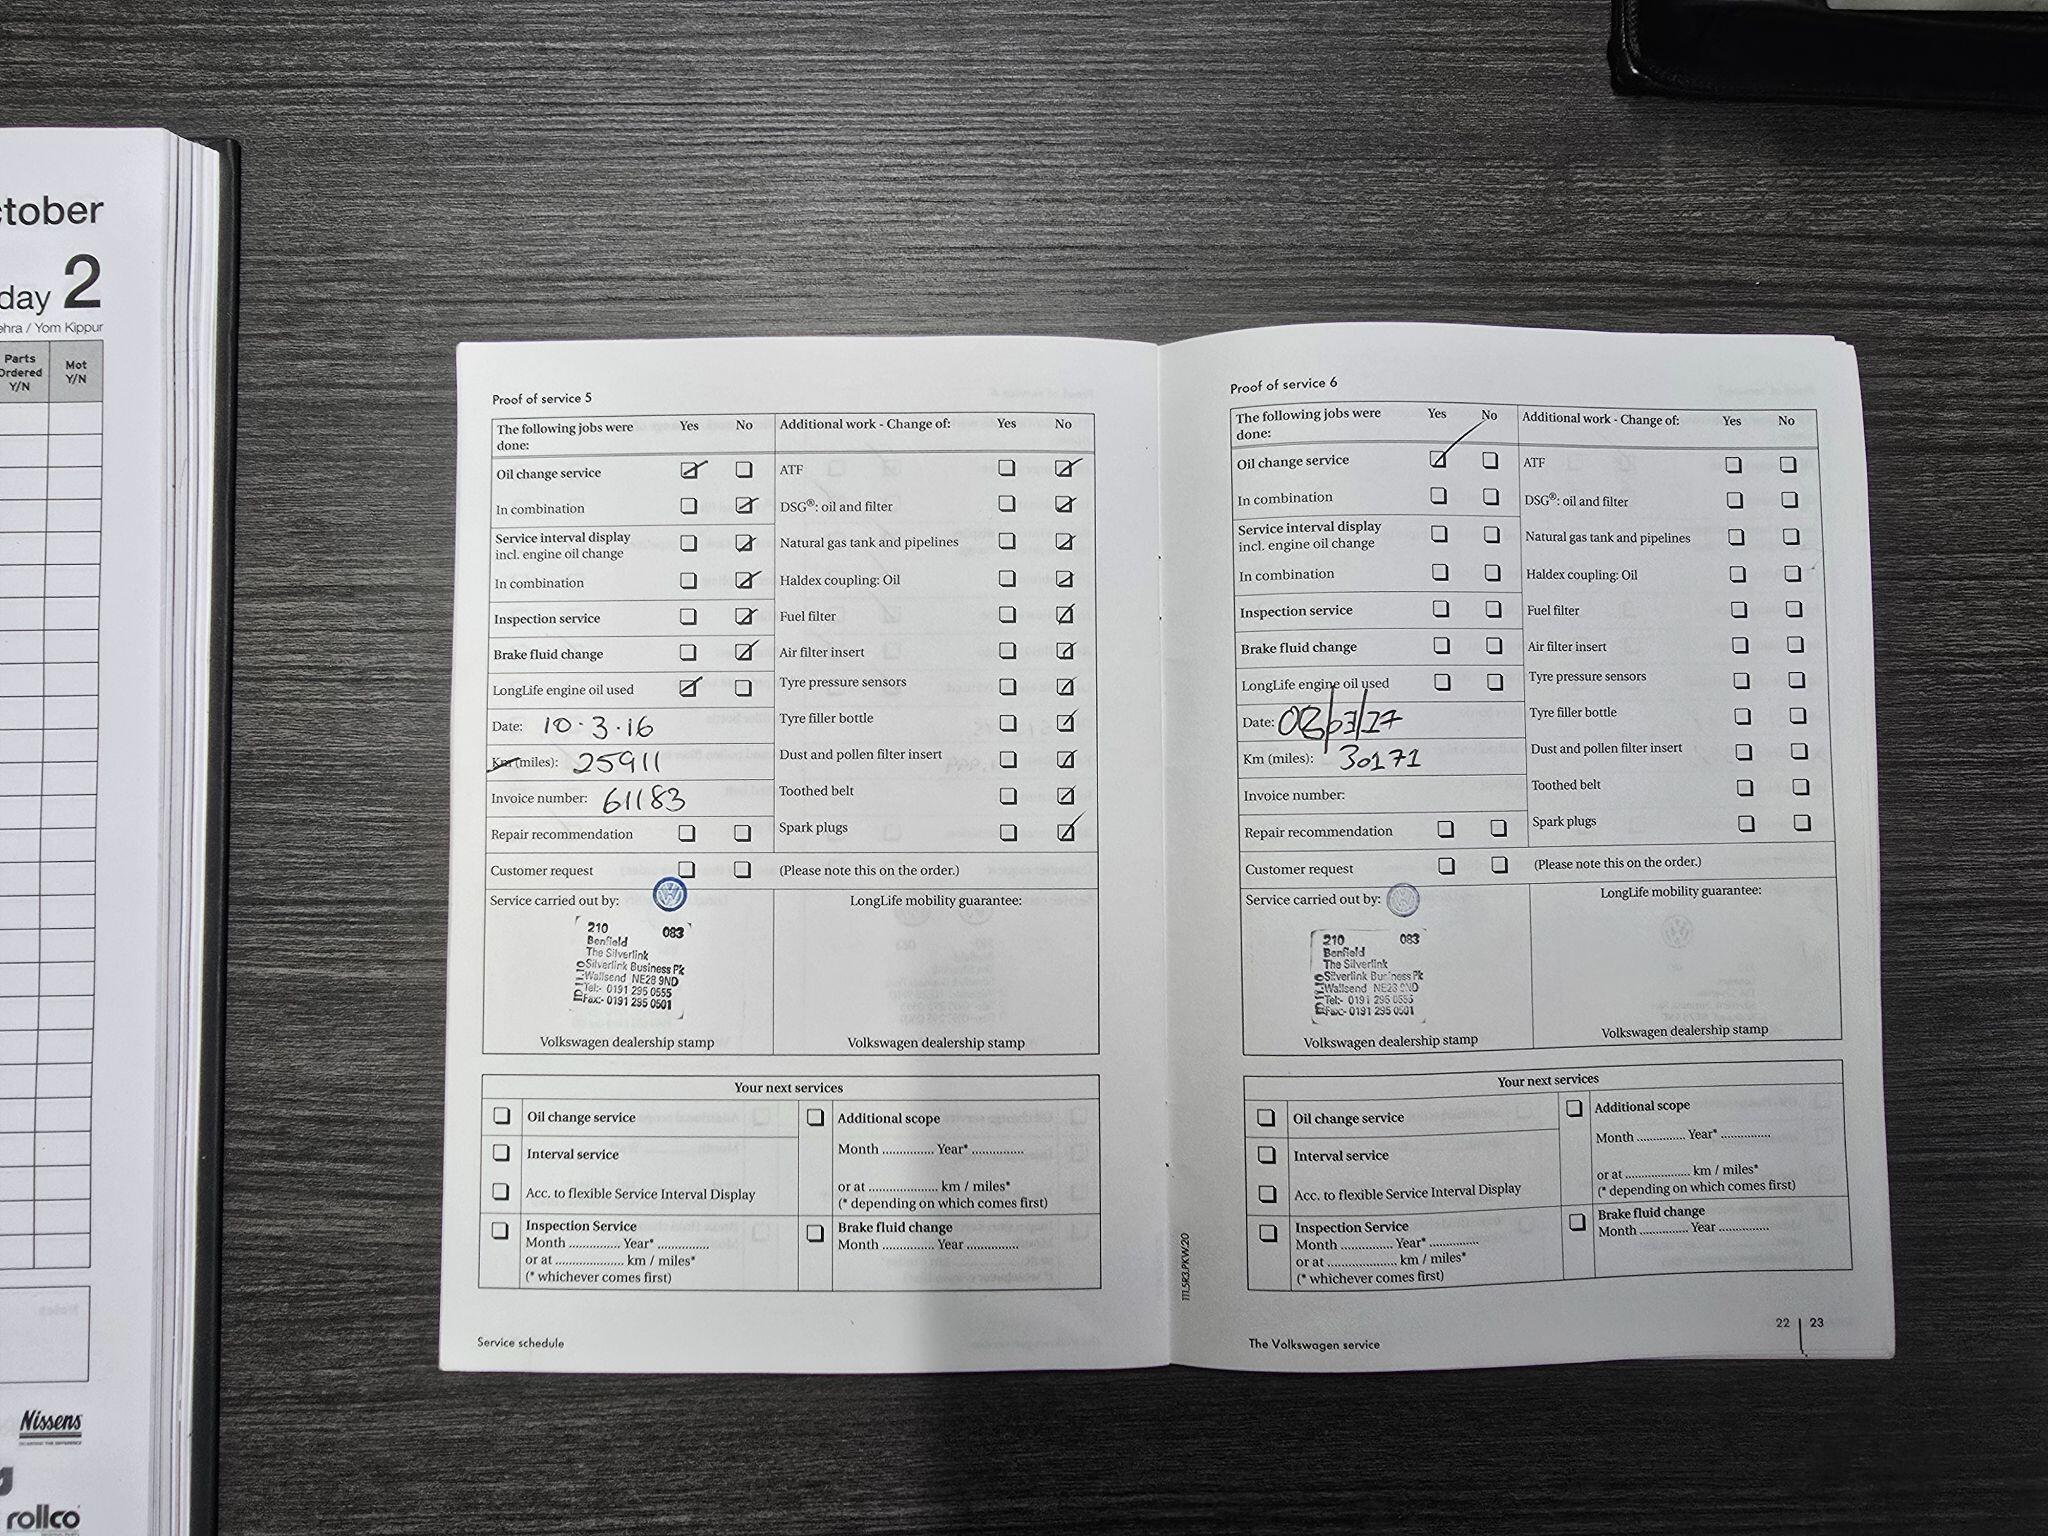 ctober
day 2
ehra / Yom Kippur
Parts
Ordered
Y/N
Mot
Y/N
Nissens
rollco
Proof of service 5
The following jobs were done: Yes No
Additional work - Change of: Yes No
Oil change service
ATF
In combination
DSG®: oil and filter
Service interval display
incl. engine oil change
Natural gas tank and pipelines
In combination
Haldex coupling: Oil
Inspection service
Fuel filter
Brake fluid change
Air filter insert
LongLife engine oil used
Tyre pressure sensors
Date: 10·3·16
Tyre filler bottle
Km (miles): 25911
Dust and pollen filter insert
Invoice number: 61183
Toothed belt
Repair recommendation
Spark plugs
Customer request
(Please note this on the order.)
Service carried out by:
LongLife mobility guarantee:
210 083
Benfield
The Silverlink
Silverlink Business Pk
Wallsend NE28 9ND
Tel:- 0191 295 0555
Fax:- 0191 295 0501
Volkswagen dealership stamp
Volkswagen dealership stamp
Your next services
Oil change service
Interval service
Acc. to flexible Service Interval Display
Inspection Service
Month .............. Year* ..............
or at .................... km / miles*
(* whichever comes first)
Additional scope
Month .............. Year* ..............
or at .................... km / miles*
(* depending on which comes first)
Brake fluid change
Month .............. Year ..............
Service schedule
111.5R3.PKW.20
Proof of service 6
The following jobs were done: Yes No
Additional work - Change of: Yes No
Oil change service
ATF
In combination
DSG®: oil and filter
Service interval display
incl. engine oil change
Natural gas tank and pipelines
In combination
Haldex coupling: Oil
Inspection service
Fuel filter
Brake fluid change
Air filter insert
LongLife engine oil used
Tyre pressure sensors
Date:
Tyre filler bottle
Km (miles): 30171
Dust and pollen filter insert
Invoice number:
Toothed belt
Repair recommendation
Spark plugs
Customer request
(Please note this on the order.)
Service carried out by:
LongLife mobility guarantee:
210 083
Benfield
The Silverlink
Silverlink Business Pk
Wallsend NE28 9ND
Tel:- 0191 295 0555
Fax:- 0191 295 0501
Volkswagen dealership stamp
Volkswagen dealership stamp
Your next services
Oil change service
Interval service
Acc. to flexible Service Interval Display
Inspection Service
Month .............. Year* ..............
or at .................... km / miles*
(* whichever comes first)
Additional scope
Month .............. Year* ..............
or at .................... km / miles*
(* depending on which comes first)
Brake fluid change
Month .............. Year ..............
The Volkswagen service
22 | 23